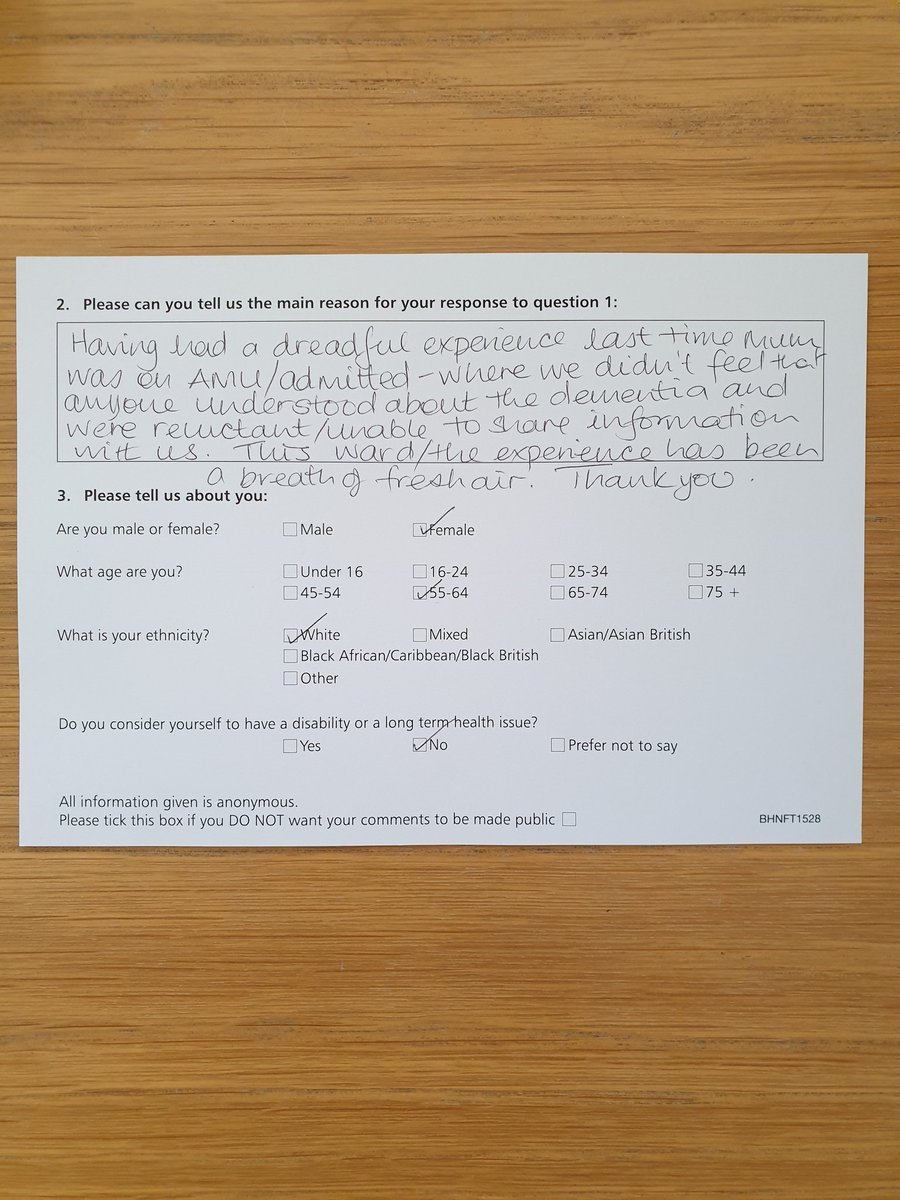 2. Please can you tell us the main reason for your response to question 1:
Having had a dreadful experience last time Mum
was on AMU/admitted - where we didn't feel that
anyone understood about the dementia and
were reluctant/unable to share information
with us. This ward/the experience has been
a breath of fresh air. Thank you.
3. Please tell us about you:
Are you male or female? Male Female
What age are you? Under 16 16-24 25-34 35-44
45-54 55-64 65-74 75 +
What is your ethnicity? White Mixed Asian/Asian British
Black African/Caribbean/Black British
Other
Do you consider yourself to have a disability or a long term health issue?
Yes No Prefer not to say
All information given is anonymous.
Please tick this box if you DO NOT want your comments to be made public BHNFT1528